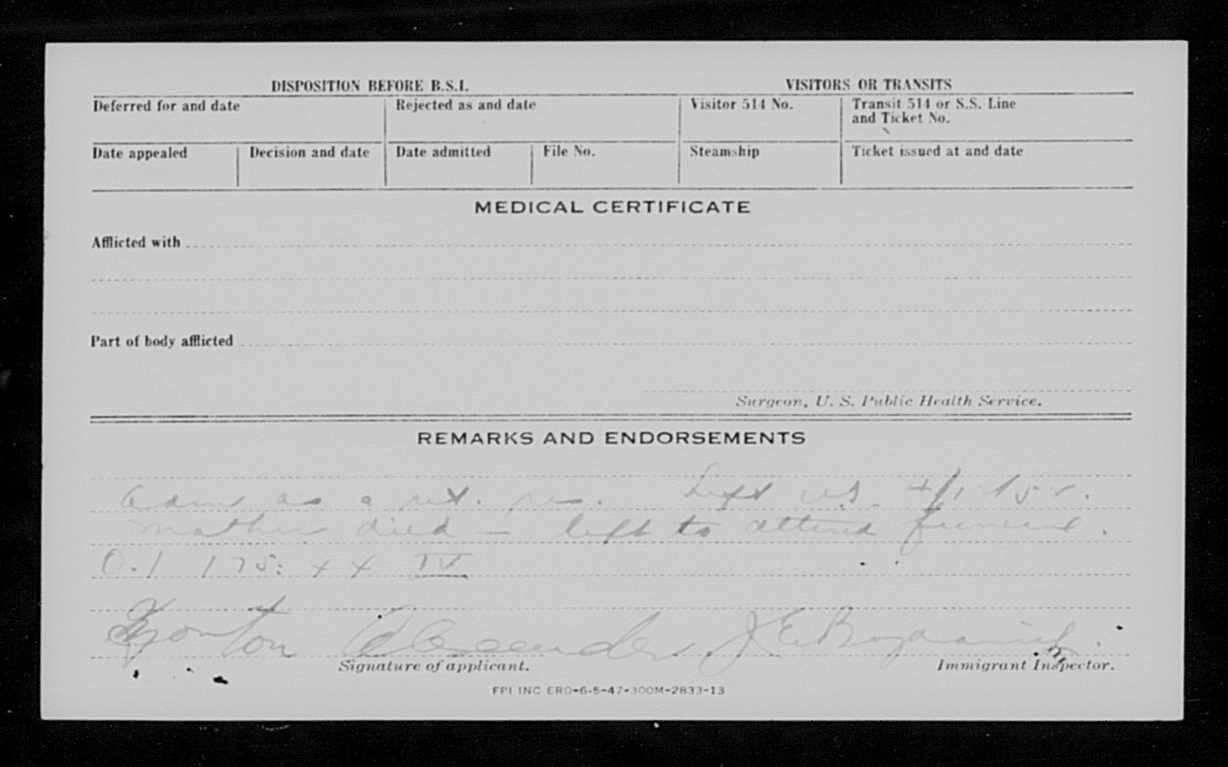 DISPOSITION BEFORE B.S.I. VISITORS OR TRANSITS
Deferred for and date Rejected as and date Visitor 514 No. Transit 514 or S.S. Line and Ticket No.
Date appealed Decision and date Date admitted File No. Steamship Ticket issued at and date
MEDICAL CERTIFICATE
Afflicted with
Part of body afflicted
Surgeon, U. S. Public Health Service.
REMARKS AND ENDORSEMENTS
Adm as a ret. res. Left U.S.
Mother died - left to attend funeral.
Alexander
Signature of applicant. Immigrant Inspector.
FPI INC ERO-6-5-47-300M-2833-13